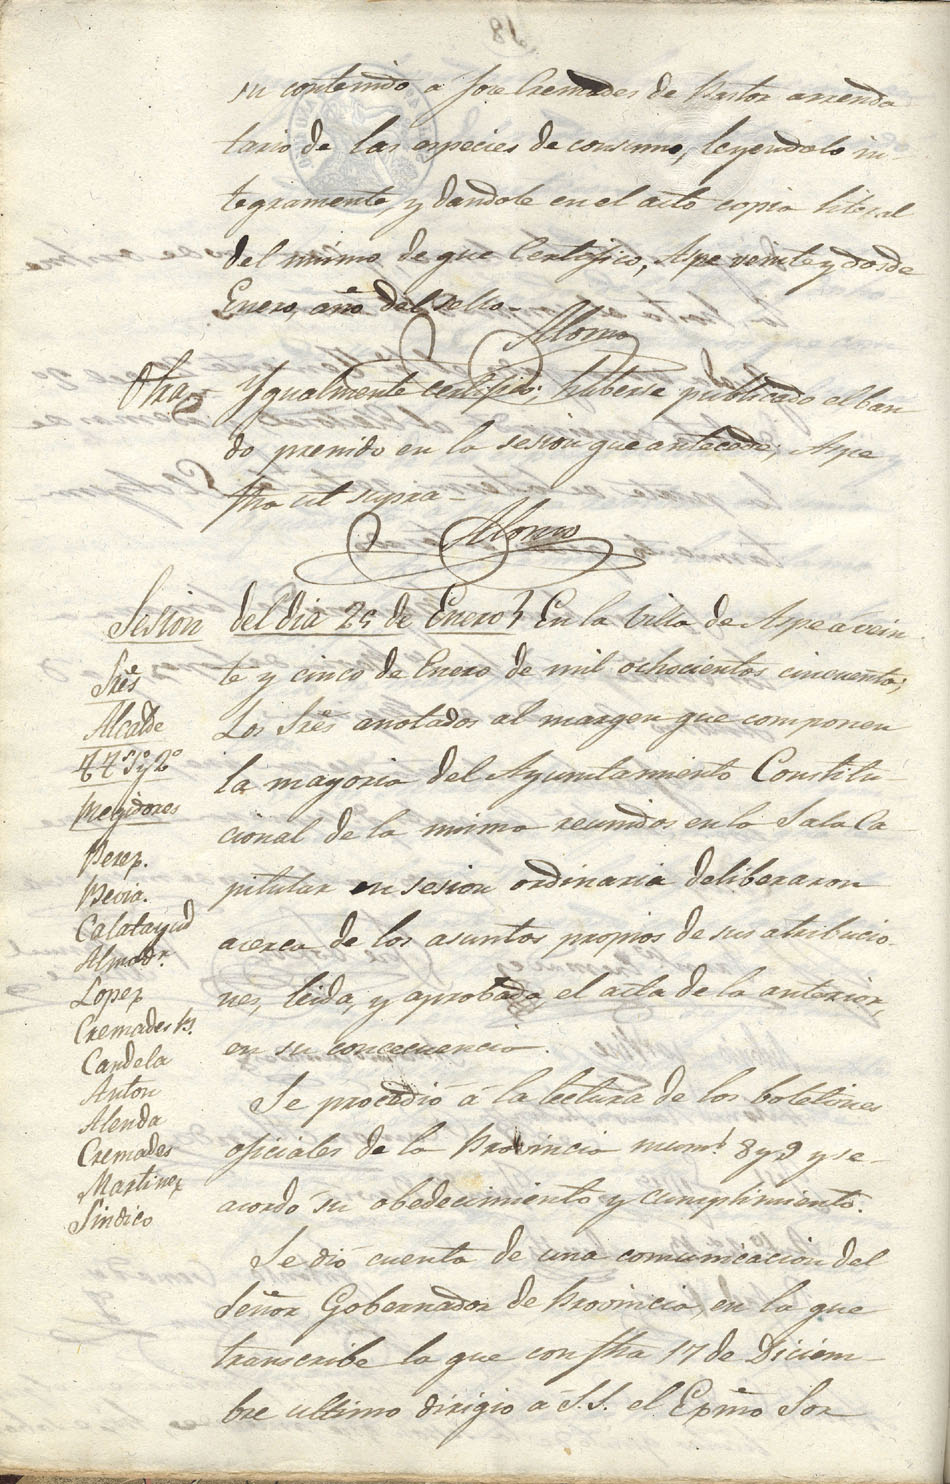 su contenido a Jose Cremades de Pastor arrenda
tario de las especies de consumo, leyendolo in-
tegramente, y dandole en el acto copia literal
del mismo de que Certifico, Aspe veinte y dos de
Enero, año del sello.
Alonso
Otra, Ygualmente certifico; haberse publicado el ban-
do prenido en la sesion que antecede; Aspe
fha ut supra-
Alonso
Sesion del dia 25 de Enero En la Villa de Aspe a vein-
te y cinco de Enero de mil ochocientos cincuenta;
Los Sres anotados al margen que componen
la mayoria del Ayuntamiento Constitu-
cional de la misma reunidos en la Sala Ca-
pitular en sesion ordinaria deliberaron
acerca de los asuntos propios de sus atribucio-
nes, leida, y aprobada, el acta de la anterior,
en su concecuencia.
Sres
Alcalde
TT 1º y 2º
Regidores
Perez.
Bevia.
Calatayud
Almodr.
Lopez
Cremades P.
Candela
Anton
Alenda
Cremades
Martinez
Sindico
Se procedió á la lectura de los boletines
oficiales de la Provincia num.s 8 y 9 y se-
acordó su obedecimiento y cumplimiento.
Se dió cuenta de una comunicacion del
Señor Gobernador de Provincia, en la que
transcribe la que con fha 17 de Diciem-
bre ultimo dirigio a S.S. el Exmo Sor